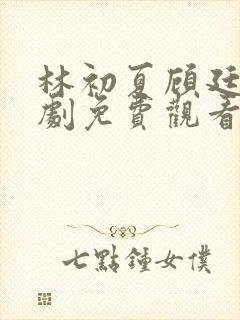 林初夏顧廷
劇免費觀看
七點鐘女僕